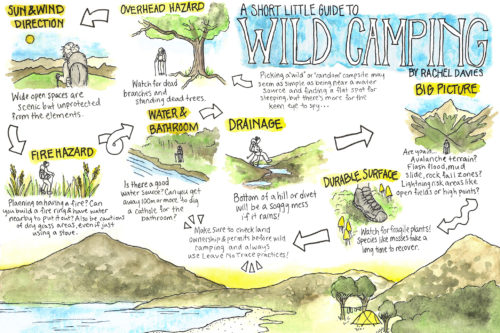 A SHORT LITTLE GUIDE TO
WILD CAMPING
BY RACHEL DAVIES
Picking a "wild" or "random" campsite may
seem as simple as being near a water
source and finding a flat spot for
sleeping, but there's more for the
keen eye to spy...
BIG PICTURE
Are you in...
Avalanche terrain?
Flash flood, mud
slide, rock fall zones?
Lightning risk areas like
open fields or high points?
DURABLE SURFACE
Watch for fragile plants!
Species like mosses take a
long time to recover.
DRAINAGE
Bottom of a hill or divet
will be a soggy mess
if it rains!
WATER &
BATHROOM
Is there a good
water source? Can you get
away 100m or more to dig
a cathole for the
bathroom?
OVERHEAD HAZARD
Watch for dead
branches and
standing dead trees.
SUN & WIND
DIRECTION
Wide open spaces are
scenic but unprotected
from the elements.
FIRE HAZARD
Planning on having a fire? Can
you build a fire ring & have water
nearby to put it out? Also be cautious
of dry grass areas, even if just
using a stove.
Make sure to check land
ownership & permits before wild
camping and always
use Leave No Trace practices!